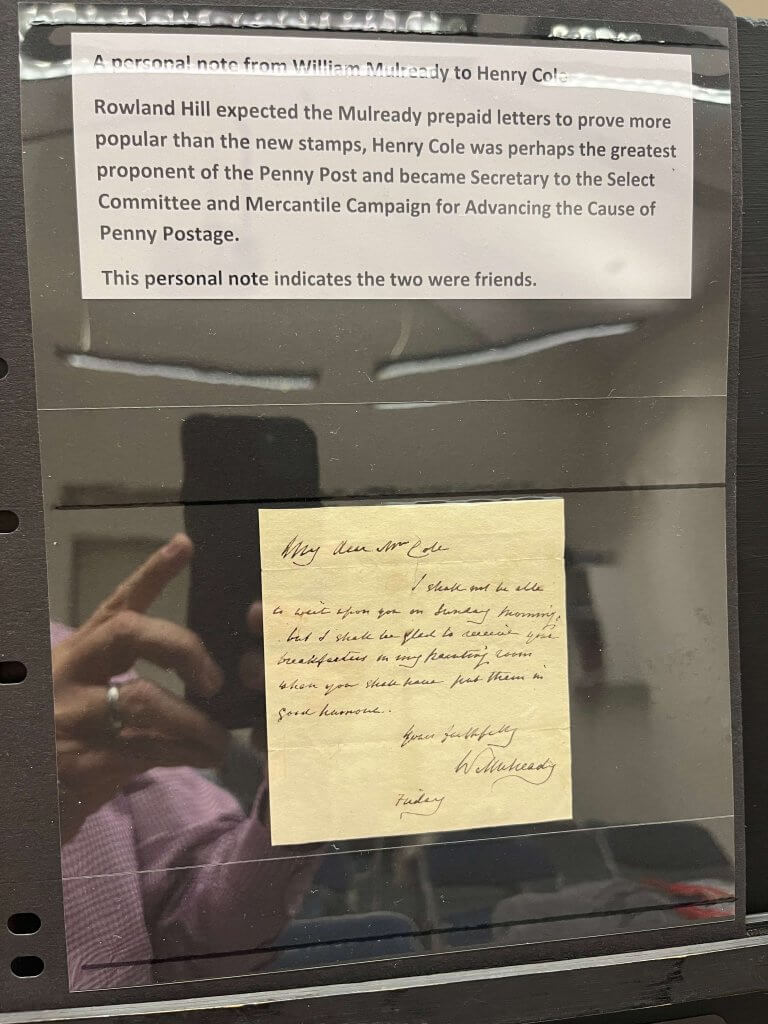 A personal note from William Mulready to Henry Cole
Rowland Hill expected the Mulready prepaid letters to prove more
popular than the new stamps, Henry Cole was perhaps the greatest
proponent of the Penny Post and became Secretary to the Select
Committee and Mercantile Campaign for Advancing the Cause of
Penny Postage.
This personal note indicates the two were friends.
My dear Mr Cole
I shall not be able
to wait upon you on Sunday morning,
but I shall be glad to receive your
breakfasters in my painting room
when you shall have put them in
good humour.
Yours faithfully
W Mulready
Friday